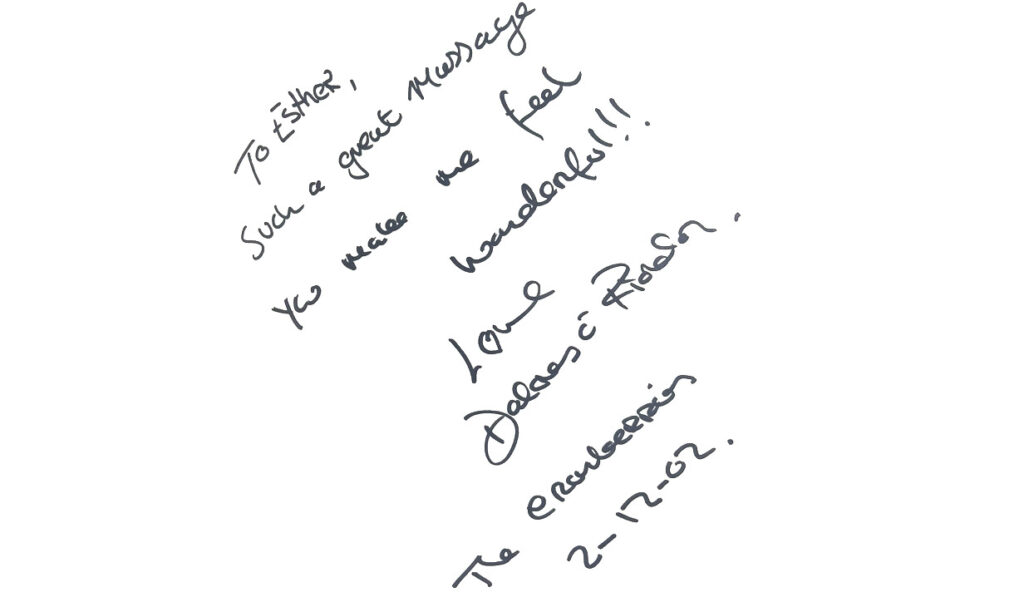 To Esther,
Such a great Message
you make me feel
wonderful!!!
Love
Dolores O' Riordan.
The cranberries
2-12-02.